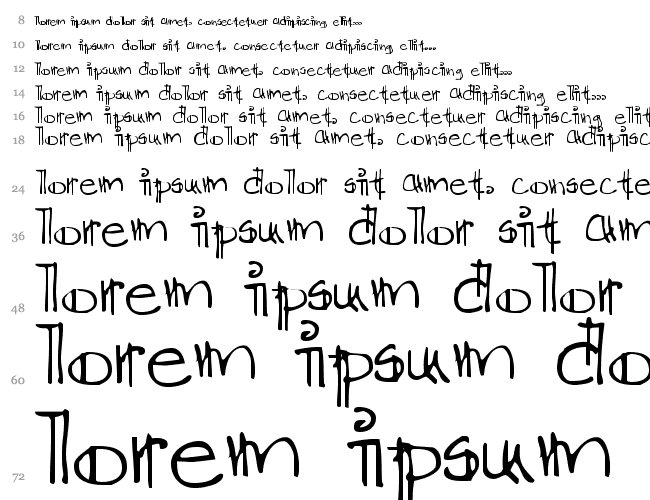 8 lorem ipsum dolor sit amet, consectetuer adipiscing elit...
10 lorem ipsum dolor sit amet, consectetuer adipiscing elit...
12 lorem ipsum dolor sit amet, consectetuer adipiscing elit...
14 lorem ipsum dolor sit amet, consectetuer adipiscing elit...
16 lorem ipsum dolor sit amet, consectetuer adipiscing elit
18 lorem ipsum dolor sit amet, consectetuer adipisc
24 lorem ipsum dolor sit amet, consecte
36 lorem ipsum dolor sit am
48 lorem ipsum dolor
60 lorem ipsum do
72 lorem ipsum